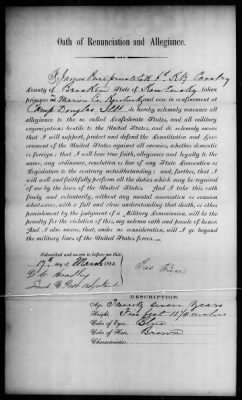 Oath of Renunciation and Allegiance.
I James Price private Co. 2d Ky Cavalry
County of Bracken State of Kentucky taken
prisoner in Marion Co Kentucky and now in confinement at
Camp Douglas Ills do hereby solemnly renounce all
allegiance to the so called Confederate States, and all military
organizations hostile to the United States, and do solemnly swear
that I will support, protect and defend the Constitution and Gov-
ernment of the United States against all enemies, whether domestic
or foreign; that I will bear true faith, allegiance and loyalty to the
same, any ordinance, resolution or law of any State Convention or
Legislature to the contrary notwithstanding; and, further, that I
will well and faithfully perform all the duties which may be required
of me by the laws of the United States. And I take this oath
freely and voluntarily, without any mental reservation or evasion
whatsoever, with a full and clear understanding that death, or other
punishment by the judgment of a Military Commission, will be the
penalty for the violation of this, my solemn oath and parole of honor.
And I also swear, that under no consideration, will I go beyond
the military lines of the United States forces.
Subscribed and sworn to before me this
17th day of March 1865
Jas Price
DESCRIPTION
Age, Twenty seven years
Height, Five feet 11 1/4 inches
Color of Eyes, Blue
Color of Hair, Brown
Characteristics,